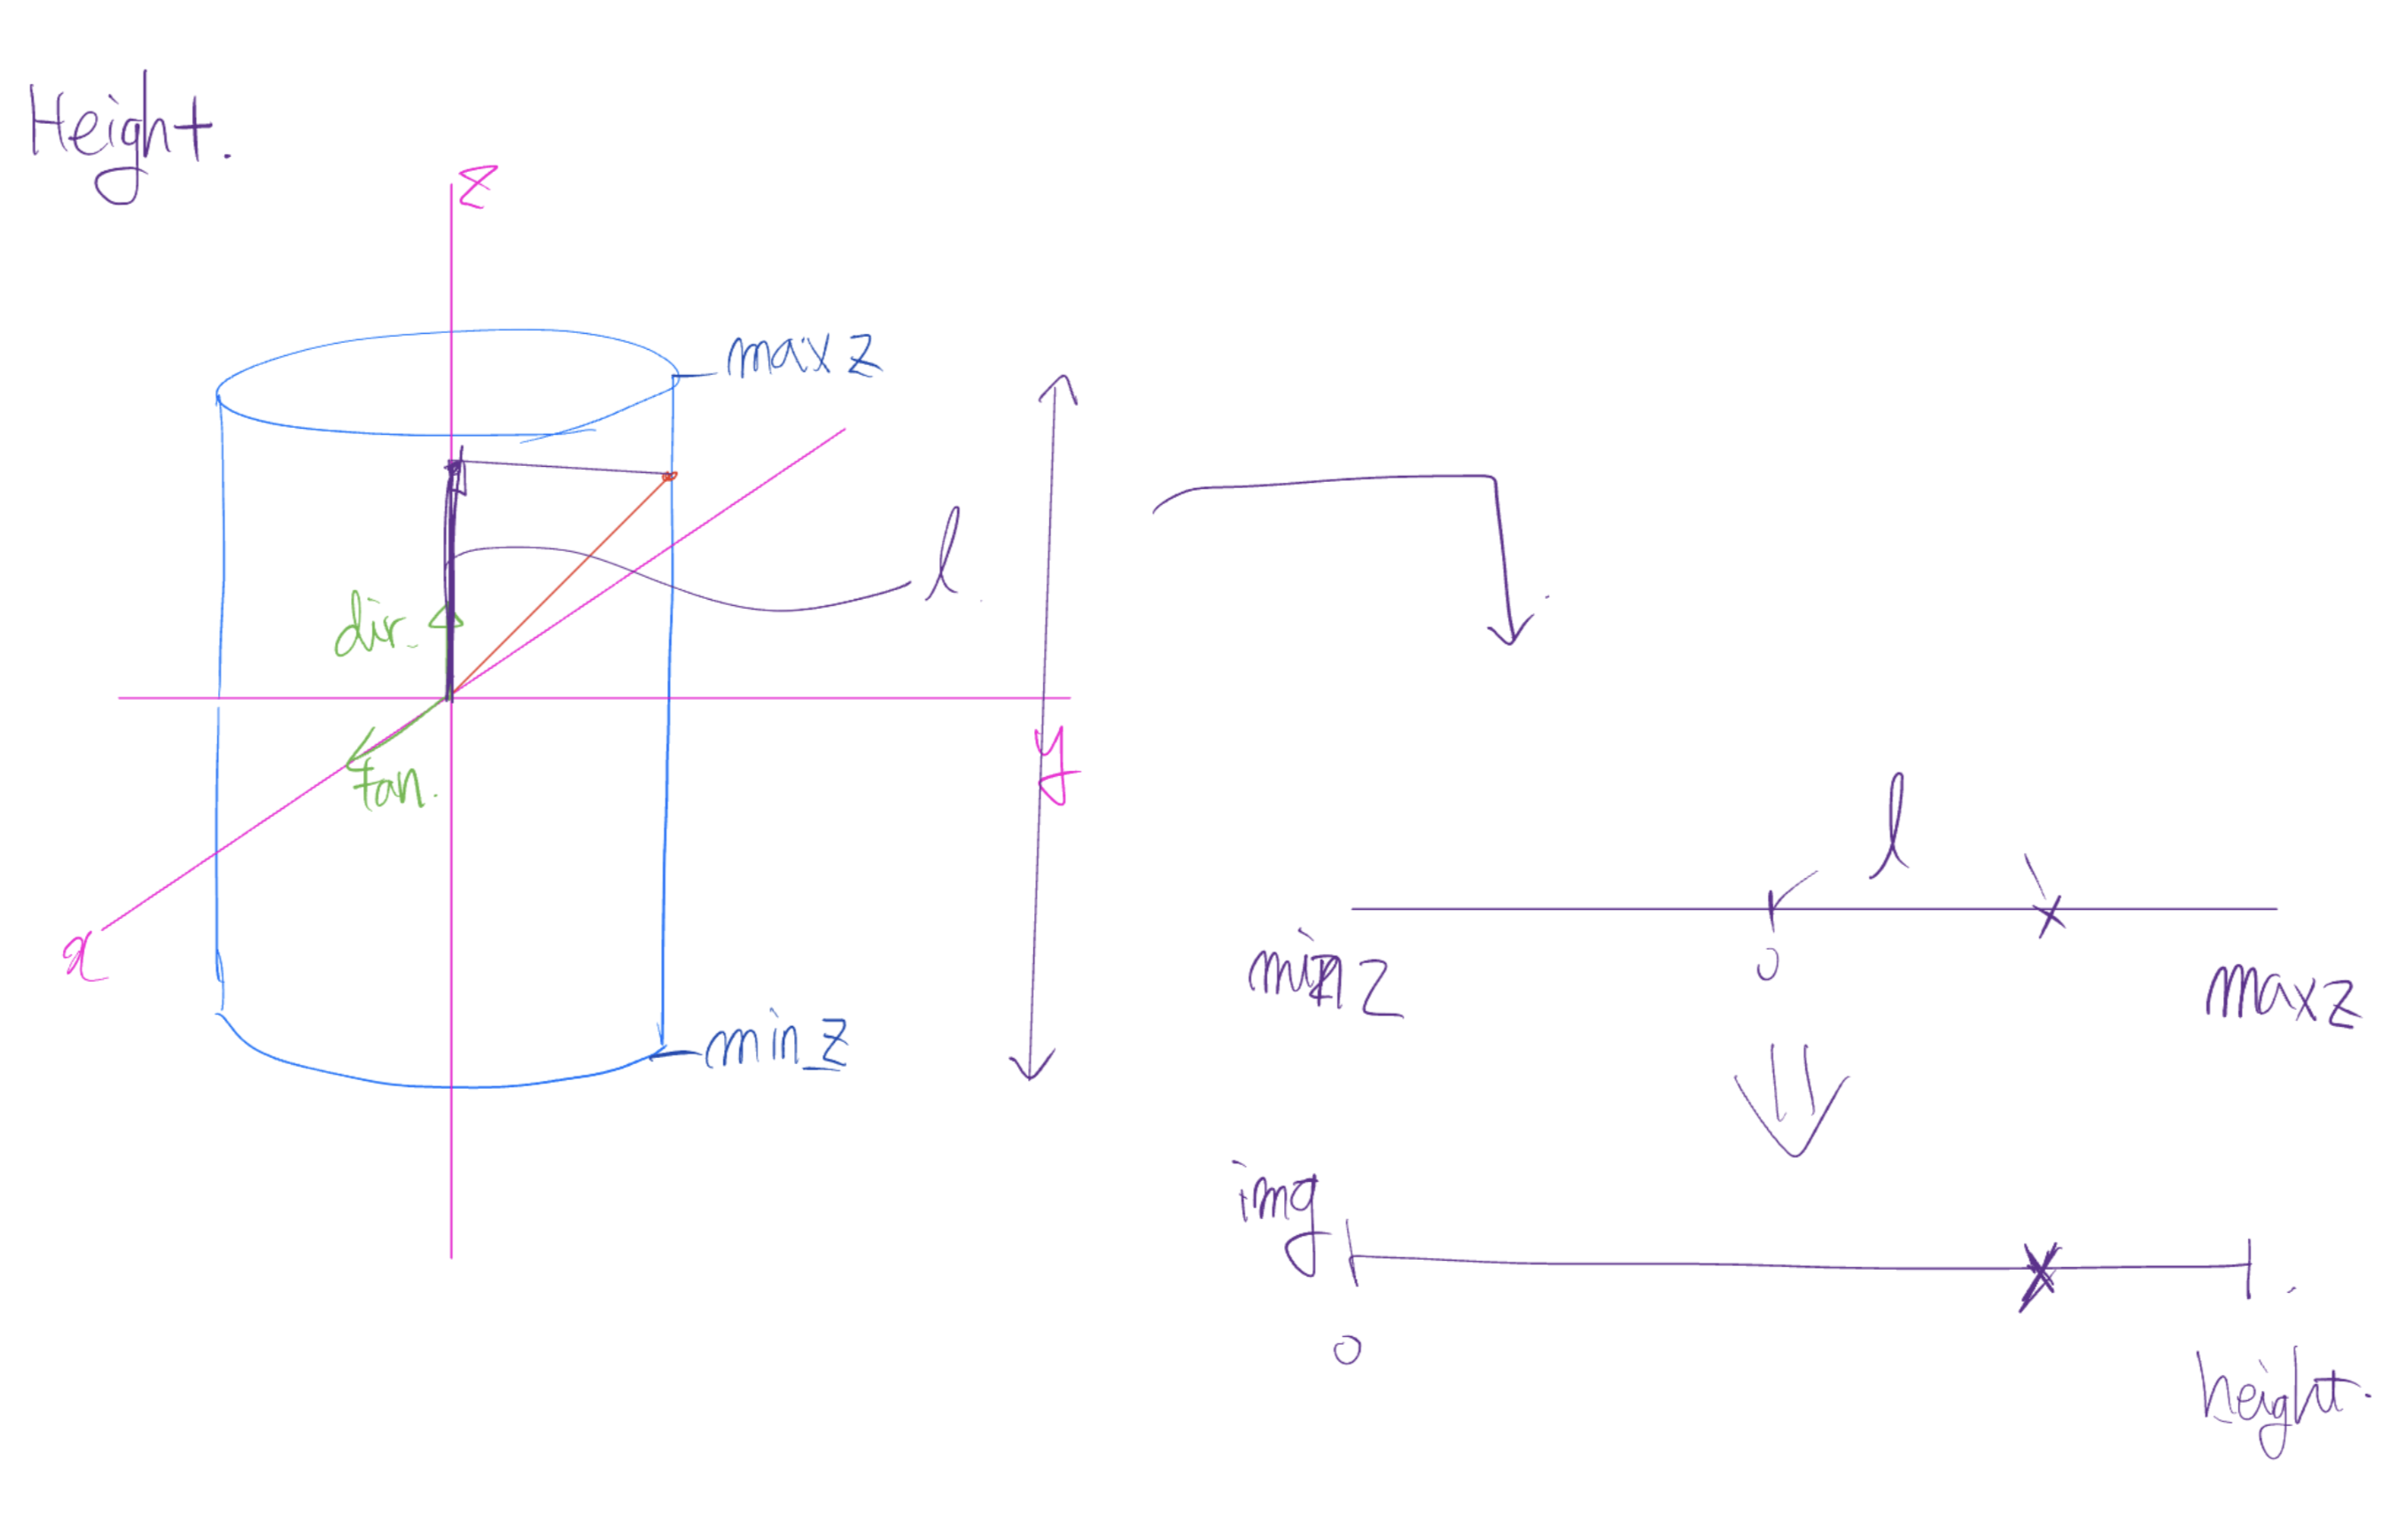 Height.
z
max z
l
dir.
y
tan.
x
min z
l
min z
0
max z
img
0
height.